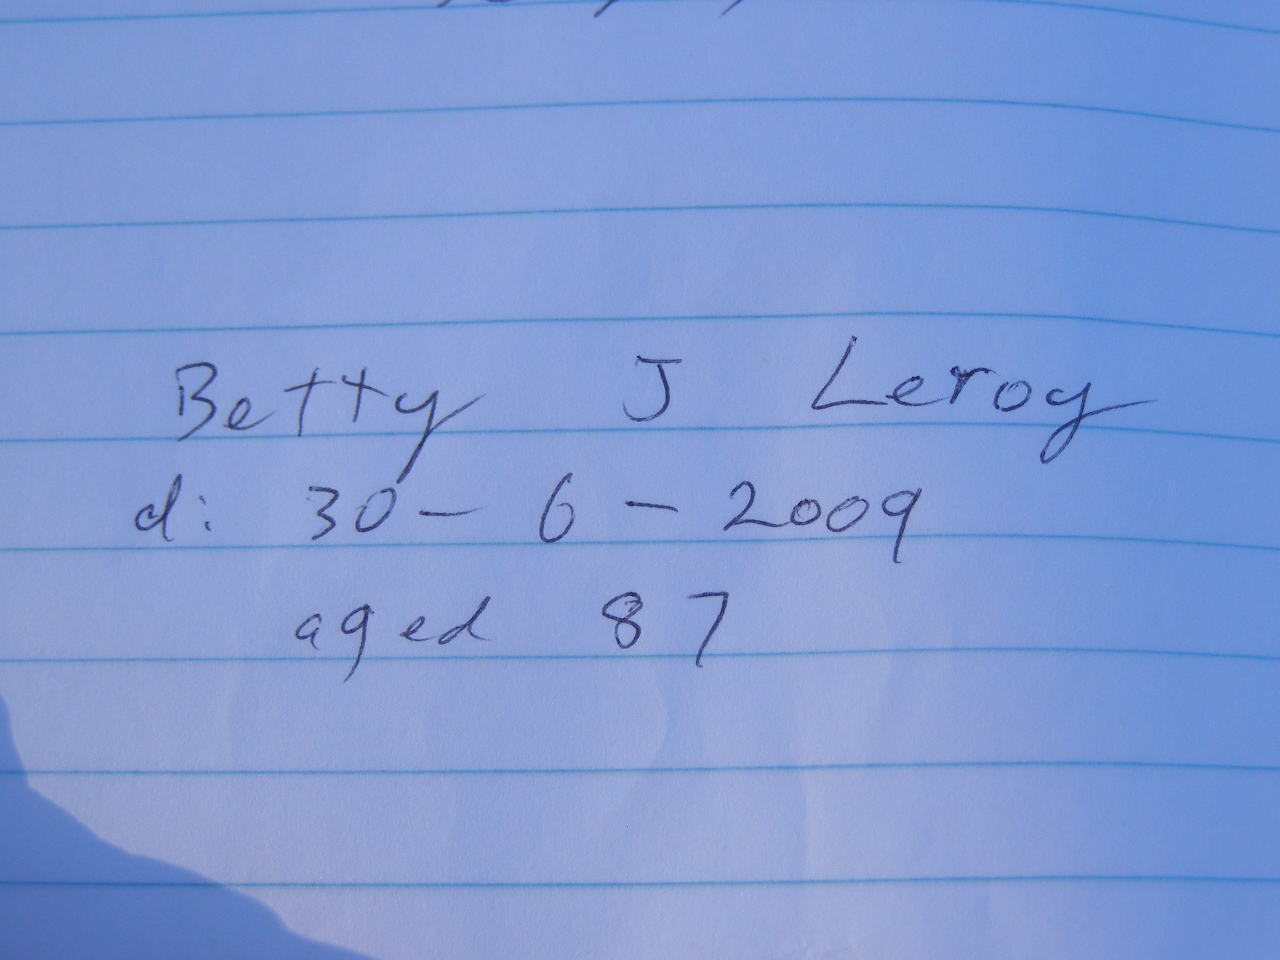 Betty J Leroy
d: 30 - 6 - 2009
aged 87